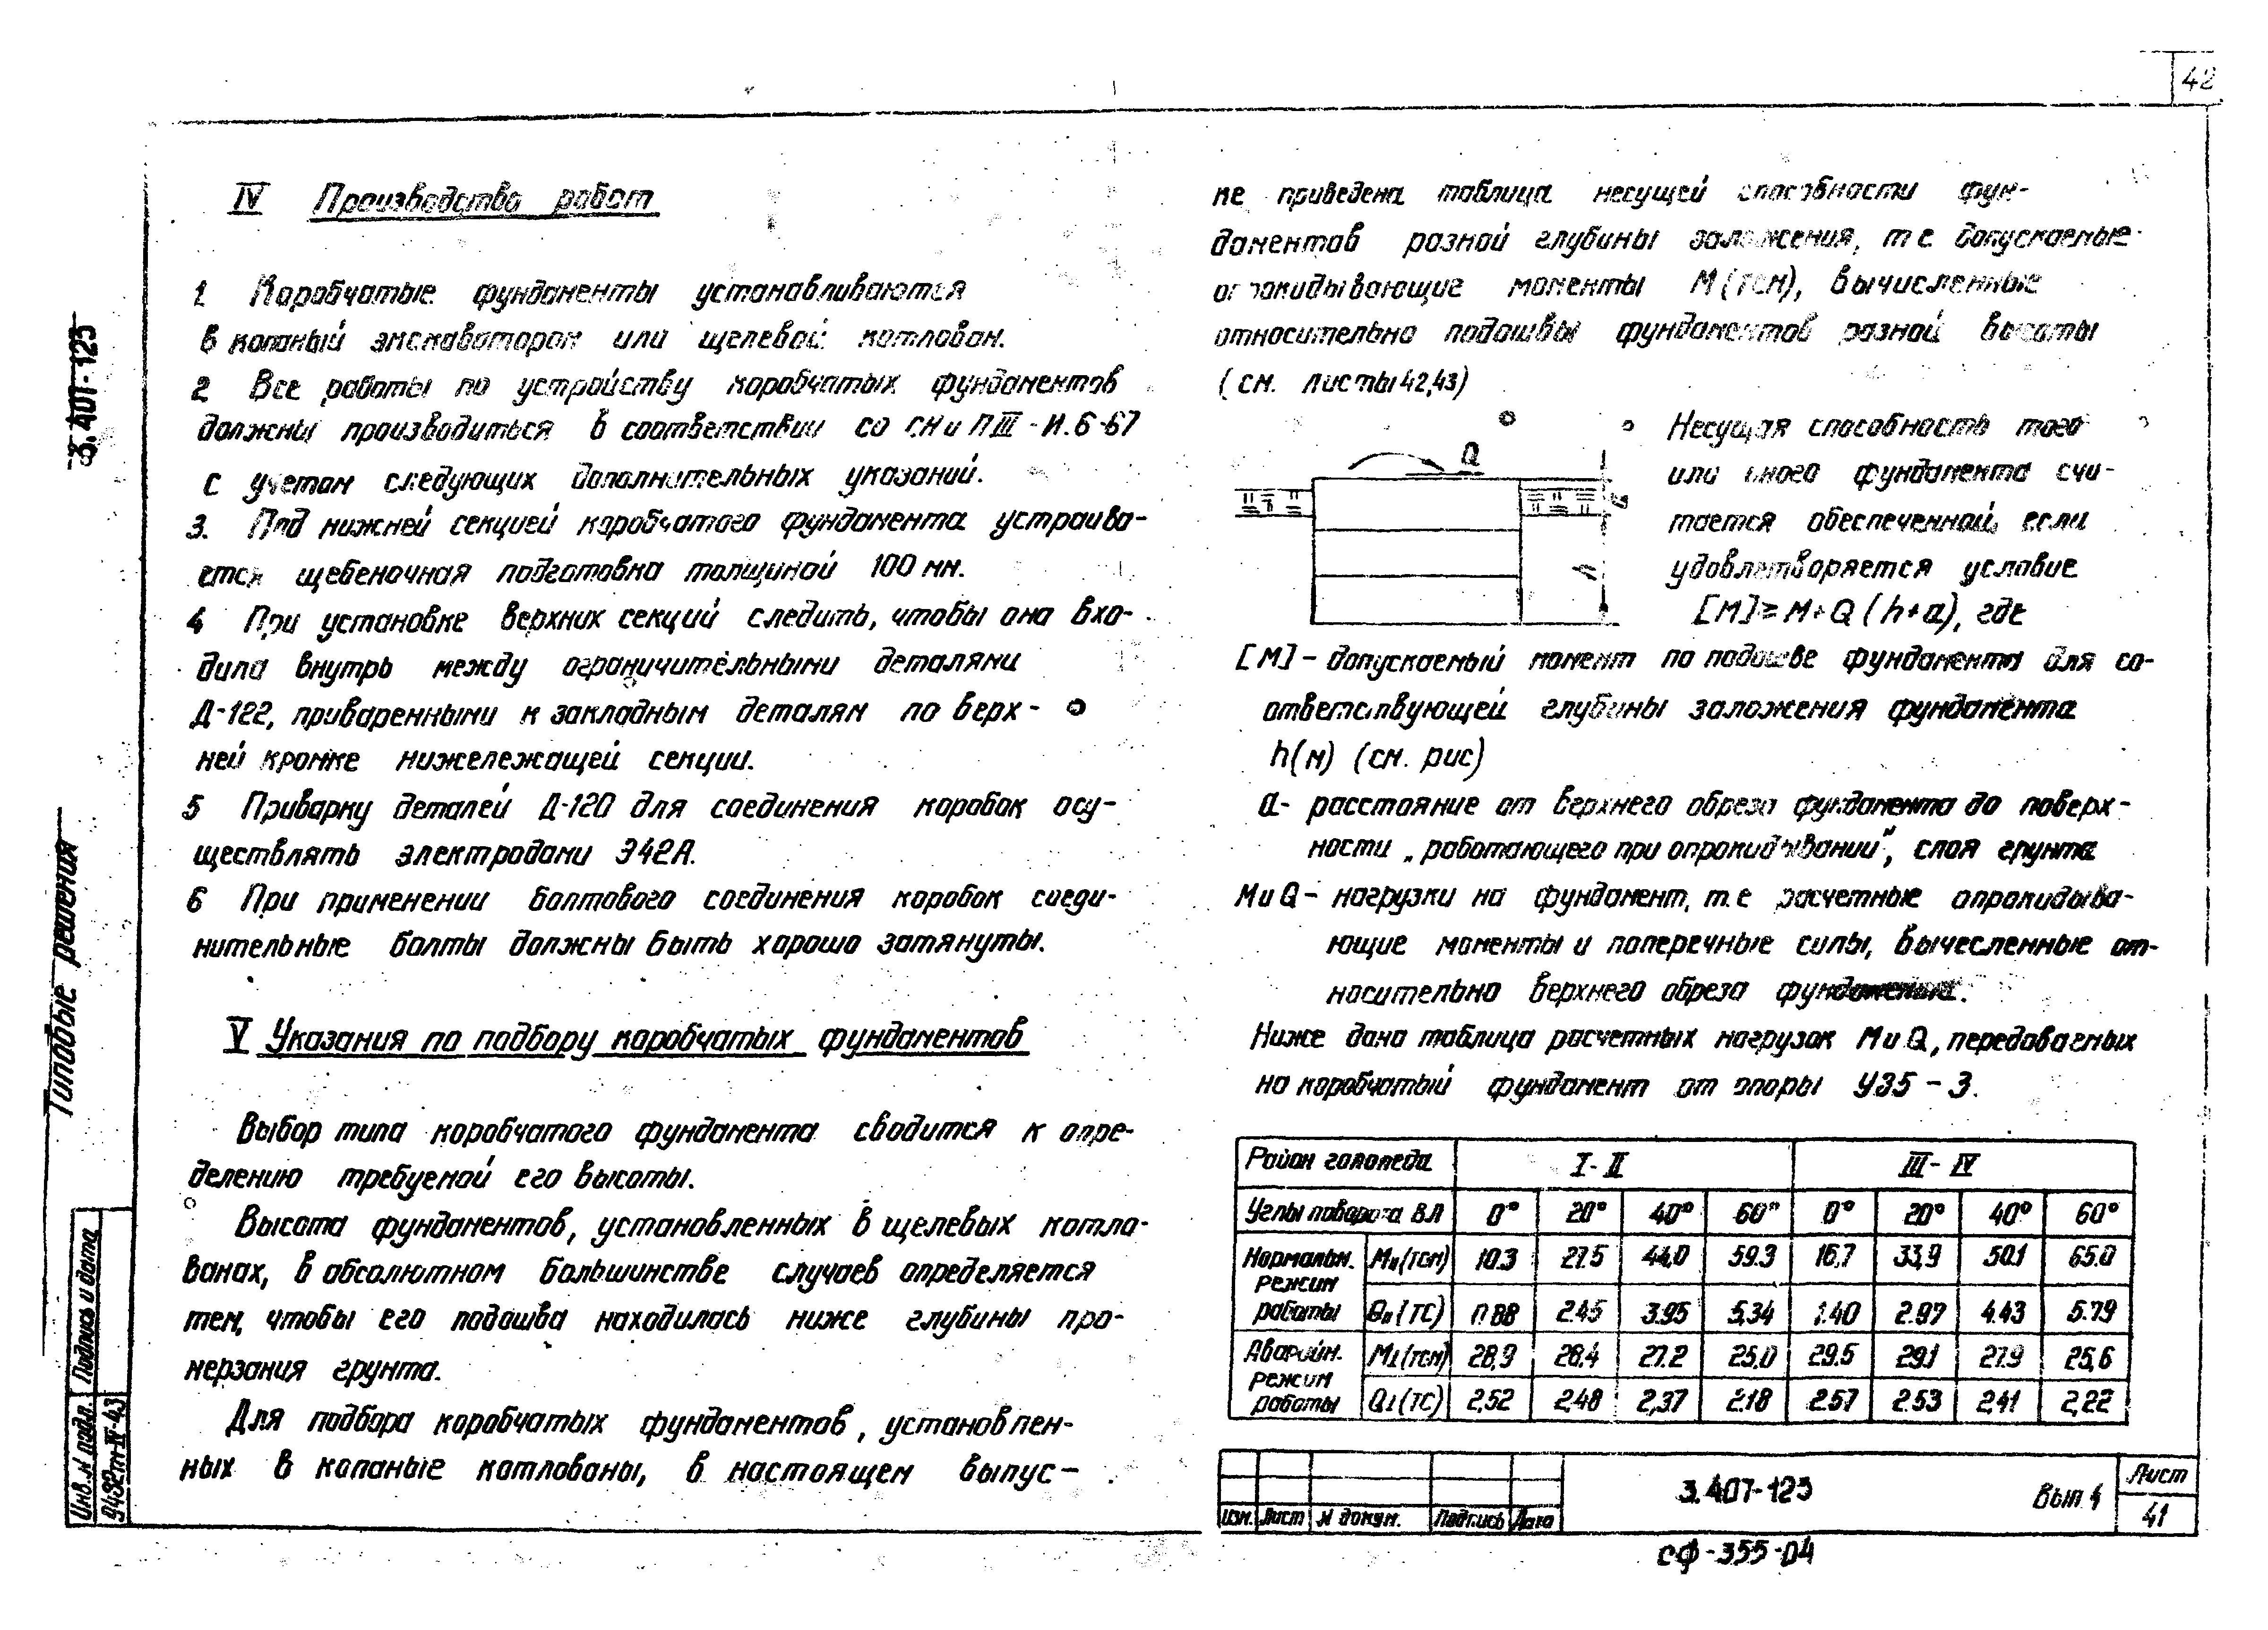 42
IV Производство работ
1 Коробчатые фундаменты устанавливаются
в копаный экскаватором или щелевой котлован.
2 Все работы по устройству коробчатых фундаментов
должны производиться в соответствии со СНиП III - И.6-67
с учетом следующих дополнительных указаний.
3. Под нижней секцией коробчатого фундамента устраива-
ется щебеночная подготовка толщиной 100 мм.
4 При установке верхних секций следить, чтобы она вхо-
дила внутрь между ограничительными деталями
Д-122, приваренными к закладным деталям по верх-
ней кромке нижележащей секции.
5 Приварку деталей Д-120 для соединения коробок осу-
ществлять электродами Э42А.
6 При применении болтового соединения коробок соеди-
нительные болты должны быть хорошо затянуты.
V Указания по подбору коробчатых фундаментов
Выбор типа коробчатого фундамента сводится к опре-
делению требуемой его высоты.
Высота фундаментов, установленных в щелевых котло-
ванах, в абсолютном большинстве случаев определяется
тем, чтобы его подошва находилась ниже глубины про-
мерзания грунта.
Для подбора коробчатых фундаментов, установлен-
ных в копаные котлованы, в настоящем выпус-
ке приведена таблица несущей способности фун-
даментов разной глубины заложения, т е допускаемые
опрокидывающие моменты М (тсм), вычисленные
относительно подошвы фундаментов разной высоты
(см. листы 42,43)
Q
a
h
Несущая способность того
или иного фундамента счи-
тается обеспеченной, если
удовлетворяется условие
[M] ≥ M+Q (h+a), где
[M] - допускаемый момент по подошве фундамента для со-
ответствующей глубины заложения фундамента
h(м) (см. рис)
a- расстояние от верхнего обреза фундамента до поверх-
ности „работающего при опрокидывании", слоя грунта
М и Q - нагрузки на фундамент, т. е расчетные опрокидыва-
ющие моменты и поперечные силы, вычесленные от-
носительно верхнего обреза фундамента.
Ниже дана таблица расчетных нагрузок М и Q, передаваемых
на коробчатый фундамент от опоры У35 - 3.
Район гололеда I - II III - IV
Углы поворота ВЛ 0° 20° 40° 60° 0° 20° 40° 60°
Нормальн. режим работы МII (тсм) 10.3 27.5 44,0 59.3 16,7 33,9 50.1 65.0
QII (ТС) 0.88 2.45 3.95 5,34 1.40 2.97 4.43 5.79
Аварийн. режим работы М⊥ (тсм) 28,9 28.4 27.2 25,0 29.5 29.1 27.9 25,6
Q⊥ (ТС) 2,52 2,48 2,37 2.18 2.57 2.53 2,41 2,22
Изм. Лист N докум. Подпись Дата
3.407-123
Вып. 4
Лист
41
СФ-355-04
3.407-123
Типовые решения
Подпись и дата
Инв. N подл.
9492тм-IV-43